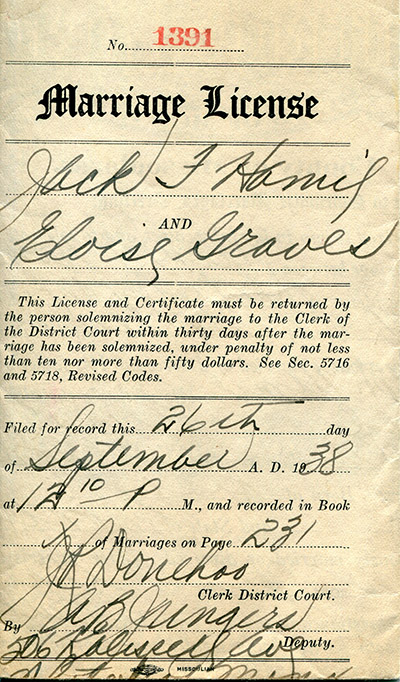 No. 1391
Marriage License
Jack F Hamil
AND
Eloise Graves
This License and Certificate must be returned by
the person solemnizing the marriage to the Clerk of
the District Court within thirty days after the mar-
riage has been solemnized, under penalty of not less
than ten nor more than fifty dollars. See Sec. 5716
and 5718, Revised Codes.
Filed for record this 26th day
of September A. D. 1938
at 12 10 P M., and recorded in Book
of Marriages on Page 231
Donehoo
Clerk District Court.
By A B Mungers
Deputy.
206 Kalispell Ave
MISSOULIAN